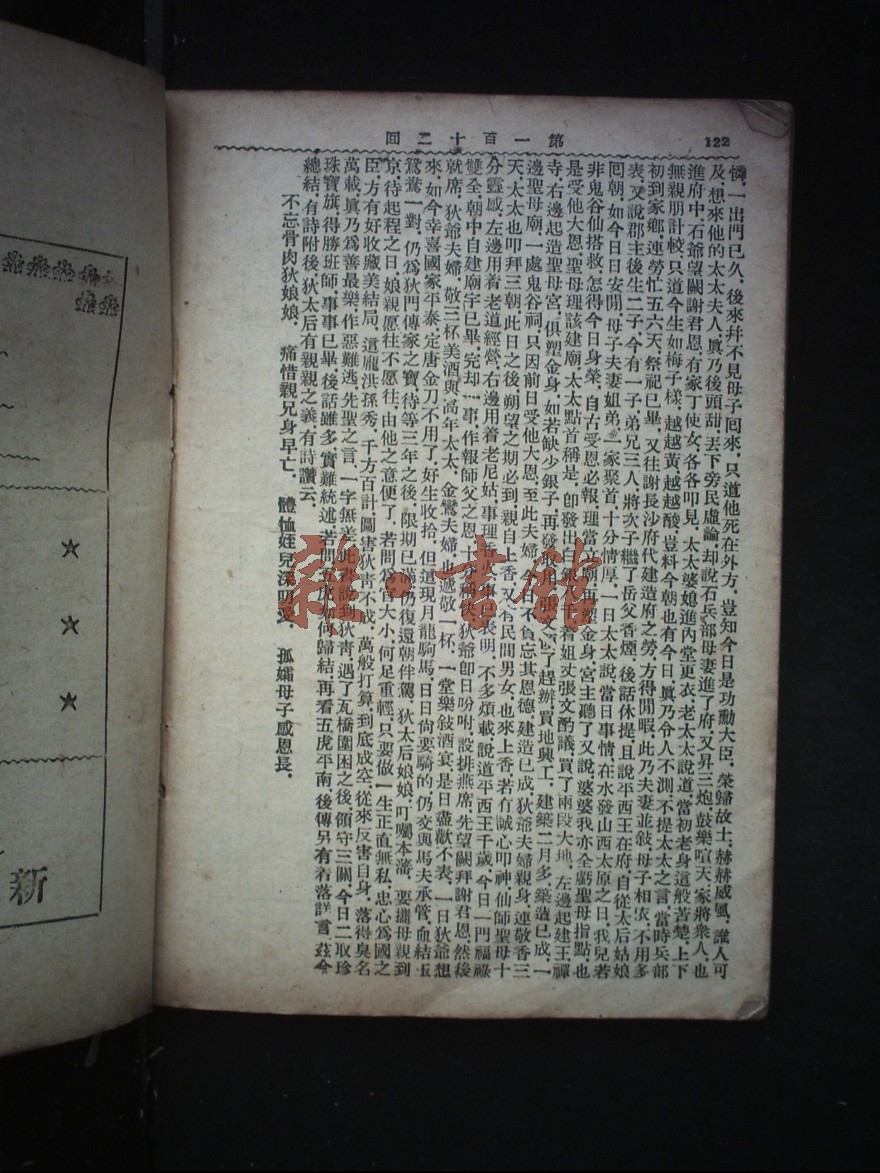 122
第一百十二回
憐，一出門已久，後來幷不見母子囘來，只道他死在外方，豈知今日是功勳大臣，榮歸故土，赫赫威風，誰人可
及，想來他的太太夫人，眞乃後頭甜，丟下旁民虛論，却說石兵部母妻進了府，又昇三炮，鼓樂喧天，家將衆人，也
進府中，石爺望闕謝君恩，有家丁使女，各各叩見，太太婆媳進內堂更衣，老太太說道，當初老身這般苦楚，上下
無親朋計較，只道今生如梅子樣，越越黃越越酸，豈料今朝也有今日，眞乃令人不測，不提太太之言，當時兵部
初到家鄉，連勞忙五六天，祭祀已畢，又往謝長沙府代建造府之勞，方得閒暇，此乃夫妻並敍，母子相依，不用多
表，又說郡主後生二子，今有一子，弟兄三人，將次子繼了岳父香煙，後話休提，且說平西王在府，自從太后姑娘
囘朝，如今日日安閒，母子夫妻姐弟，一家聚首，十分情厚，一日太太說，當日事情，在水發山西太原之日，我兒若
非鬼谷仙搭救，怎得今日身榮，自古受恩必報，理當立廟，再塑金身，宮主聽了又說，婆婆我亦全虧聖母指點，也
是受他大恩，聖母理該建廟，太太點首稱是，卽發出白銀　千，着姐丈張文酌議，買了兩段大地，左邊起建王禪
寺，右邊起造聖母宮，俱塑金身，如若缺少銀子，再發取用，張文　了趕辦，買地興工，建築二月多，築造已成，一
邊聖母廟，一處鬼谷祠，只因前日受他大恩，至此夫婦　　不負忘其恩德，建造已成，狄爺夫婦親身，連敬香三
天，太太也叩拜三朝，此日之後，朔望之期必到親自上香，又　民間男女，也來上香，若有誠心叩神，仙師聖母十
分靈感，左邊用着老道經營，右邊用着老尼姑，事理香火，事　表明，不多煩載，說道平西王千歲，今日一門福祿
雙全，朝中自建廟宇已畢，完却一事，作報師父之恩，十分稱快，狄爺卽日吩咐，設排燕席，先望闕拜謝君恩，然後
就席，狄爺夫婦，敬三杯美酒與高年太太，金鸞夫婦，也遞敬一杯，一堂樂敍酒宴，是日盡歡不表，一日狄爺想
來，如今幸喜國家平泰，定唐金刀不用了，好生收拾，但這現月龍駒馬，日日尙要騎的，仍交與馬夫承管，血結玉
鴛鴦一對，仍爲狄門傳家之寶，待等三年之後，限期已滿，仍復還朝伴駕，狄太后娘娘，叮囑本藩，要攜母親到
京，待起程之日，娘親愿往不愿往，由他之意便了，若問爲官大小，何足重輕，只要做一生正直無私，忠心爲國之
臣，方有好收藏美結局，這龐洪孫秀，千方百計，圖害狄靑不成，萬般打算，到底成空，從來反害自身，落得臭名
萬載，眞乃爲善最樂，作惡難逃，先聖之言，一字無差，此書說到狄靑，遇了瓦橋圍困之後，領守三關，今日二取珍
珠寶旗，得勝班師，事事已畢，後話雖多，實難統述，若問五虎如何歸結，再看五虎平南，後傳另有着落詳言，茲今
總結，有詩附後，狄太后有親親之義，有詩讚云，
不忘骨肉狄娘娘，　痛惜親兄身早亡，　體恤姪兒深切愛，　孤孀母子感恩長，
新
雜·書館